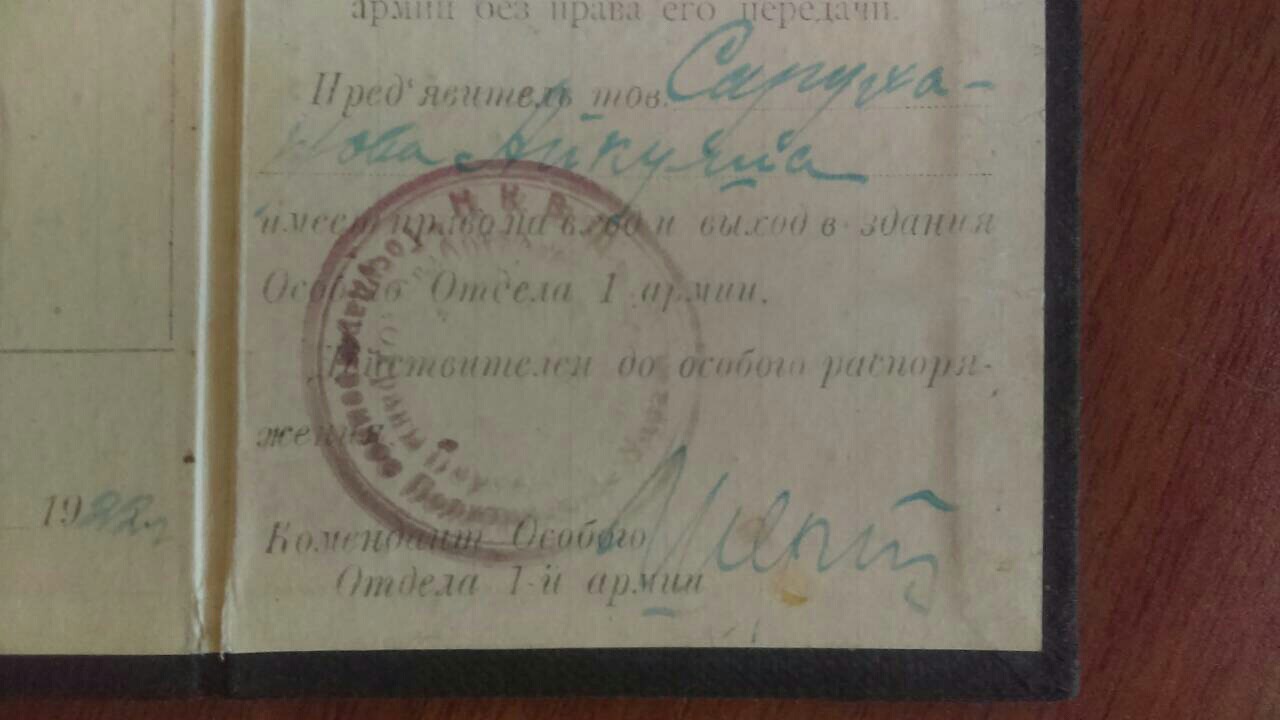 армии без права его передачи.
Пред'явитель тов. Саруха-
нова Айкуяна
имеет право на вход и выход в здания
Особого Отдела 1 армии.
Действителен до особого распоря-
жения
1922г
Комендант Особого
Отдела 1-й армии
Н. К. В. Д.
Государственное Полит